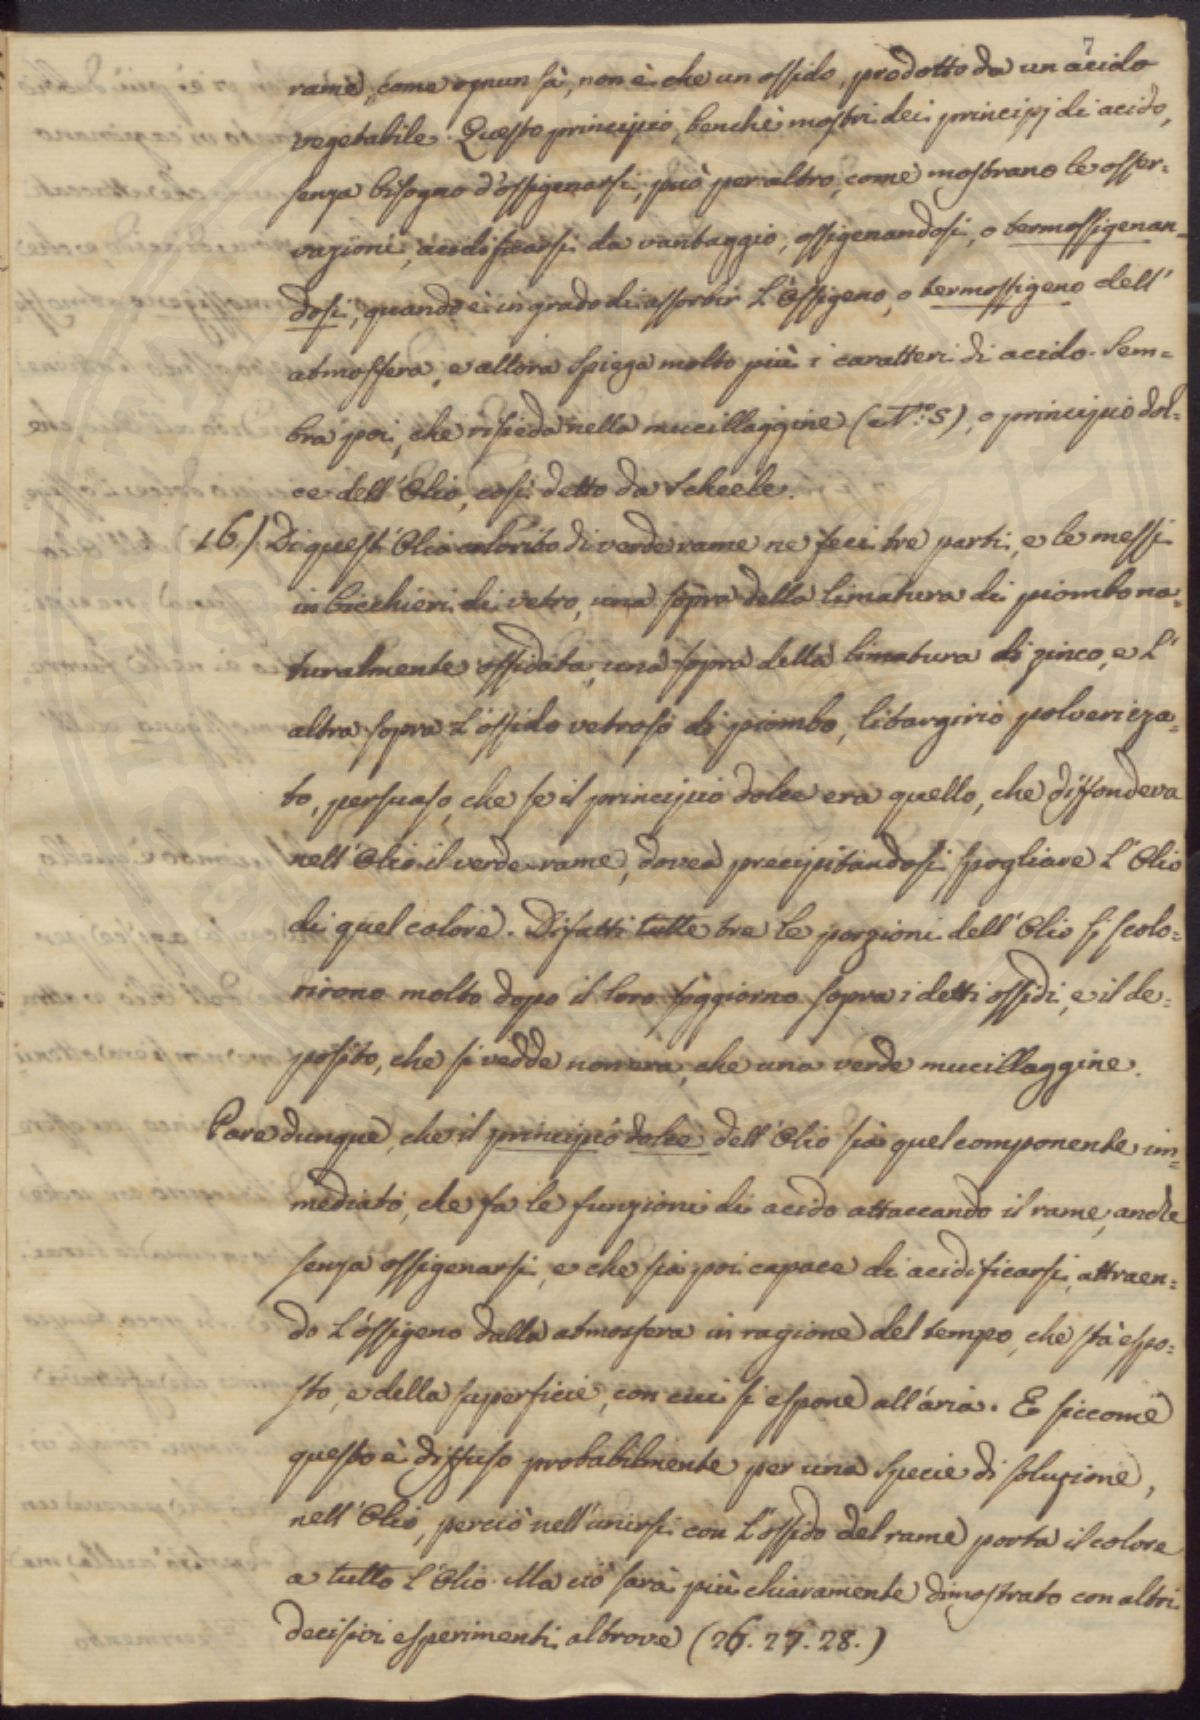 7
rame, come ognun sà, non è che un ossido, prodotto da un acido
vegetabile. Questo principio, benchè mostri dei principj di acido,
senza bisogno d'ossigenarsi, può per altro, come mostrano le osser=
vazioni, acidificarsi da vantaggio, ossigenandosi, o termossigenan=
dosi, quando è in grado di assorbir l'Ossigeno, o termossigeno dell'
atmosfera, e allora spiega molto più i caratteri di acido. Sem=
bra poi, che risieda nella mucillaggine (N.º 5), o principio dol=
ce dell'Olio, così detto da Scheele.
16) Di quest'Olio colorito di verde rame ne feci tre parti, e le messi
in bicchieri di vetro, una sopra della limatura di piombo na=
turalmente ossidata, una sopra della limatura di zinco, e l'
altra sopra l'ossido vetroso di piombo, litargirio polverizza=
to, persuaso, che se il principio dolce era quello, che diffondeva
nell'Olio il verde rame, dovea precipitandosi spogliare l'Olio
di quel colore. Difatti tutte tre le porzioni dell'Olio si scolo=
rirono molto dopo il loro soggiorno sopra i detti ossidi, e il de=
posito, che si vedde non era, che una verde mucillaggine.
Pare dunque, che il principio dolce dell'Olio sia quel componente im=
mediato, che fa le funzioni di acido attaccando il rame, anche
senza ossigenarsi, e che sia poi capace di acidificarsi, attraen=
do l'ossigeno dalla atmosfera in ragione del tempo, che stà espo=
sto, e della superficie, con cui si espone all'aria. E siccome
questo è diffuso probabilmente per una specie di soluzione,
nell'Olio, perciò nell'unirsi con l'ossido del rame porta il colore
a tutto l'Olio. Ma ciò sarà più chiaramente dimostrato con altri
decisivi esperimenti altrove (26. 27. 28.)